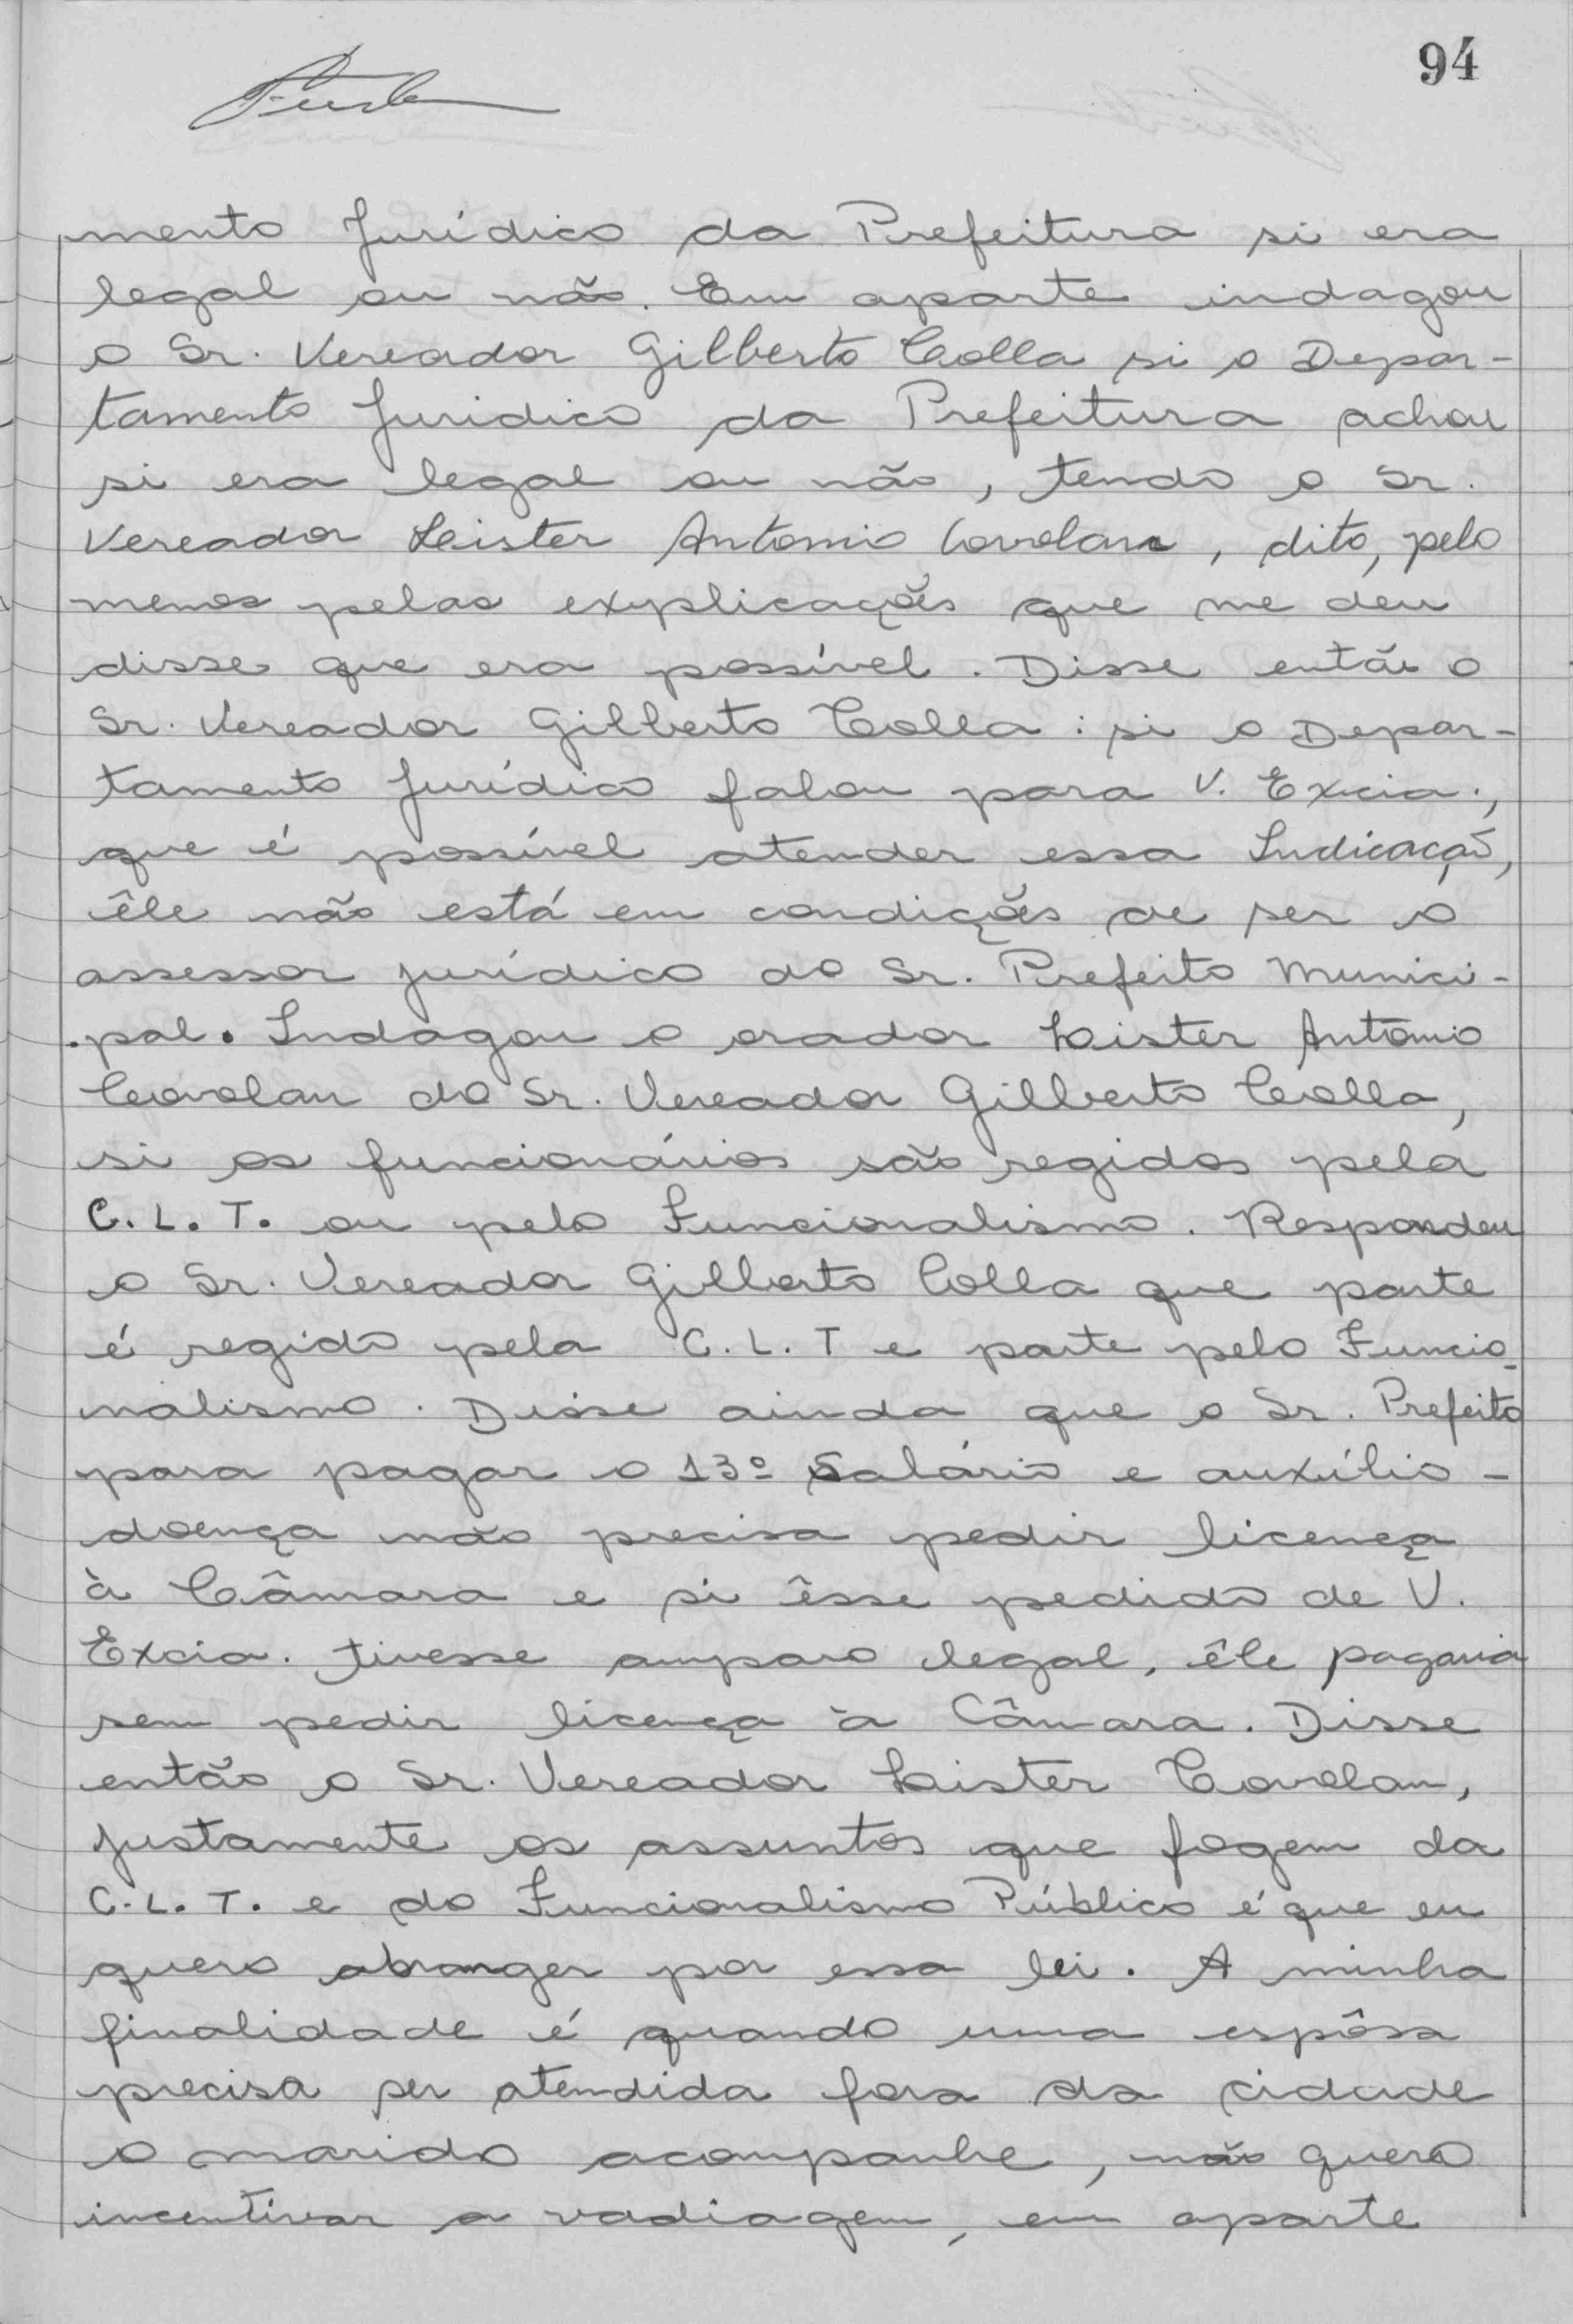 94
mento Jurídico da Prefeitura si era
legal ou não. Em aparte indagou
o Sr. Vereador Gilberto Colla si o Depar-
tamento Juridico da Prefeitura achou
si era legal ou não, tendo o Sr.
Vereador Leister Antonio Covolan, dito, pelo
menos pelas explicações que me deu
disse que era possível. Disse então o
Sr. Vereador Gilberto Colla: si o Depar-
tamento Jurídico falou para V. Excia.,
que é possível atender essa Indicação,
êle não está em condições de ser o
assessor jurídico do Sr. Prefeito Munici-
pal. Indagou o orador Leister Antonio
Covolan do Sr. Vereador Gilberto Colla,
si os funcionários são regidos pela
C. L. T. ou pelo Funcionalismo. Respondeu
o Sr. Vereador Gilberto Colla que parte
é regido pela C. L. T e parte pelo Funcio-
nalismo. Disse ainda que o Sr. Prefeito
para pagar o 13º Salário e auxílio-
doença não precisa pedir licença
à Câmara e si êsse pedido de V.
Excia. tivesse amparo legal, êle pagaria
sem pedir licença à Câmara. Disse
então o Sr. Vereador Leister Covolan,
justamente os assuntos que fogem da
C. L. T. e do Funcionalismo Público é que eu
quero abranger por essa lei. A minha
finalidade é quando uma espôsa
precisa ser atendida fora da cidade
o marido acompanhe, não quero
incentivar a vadiagem, em aparte